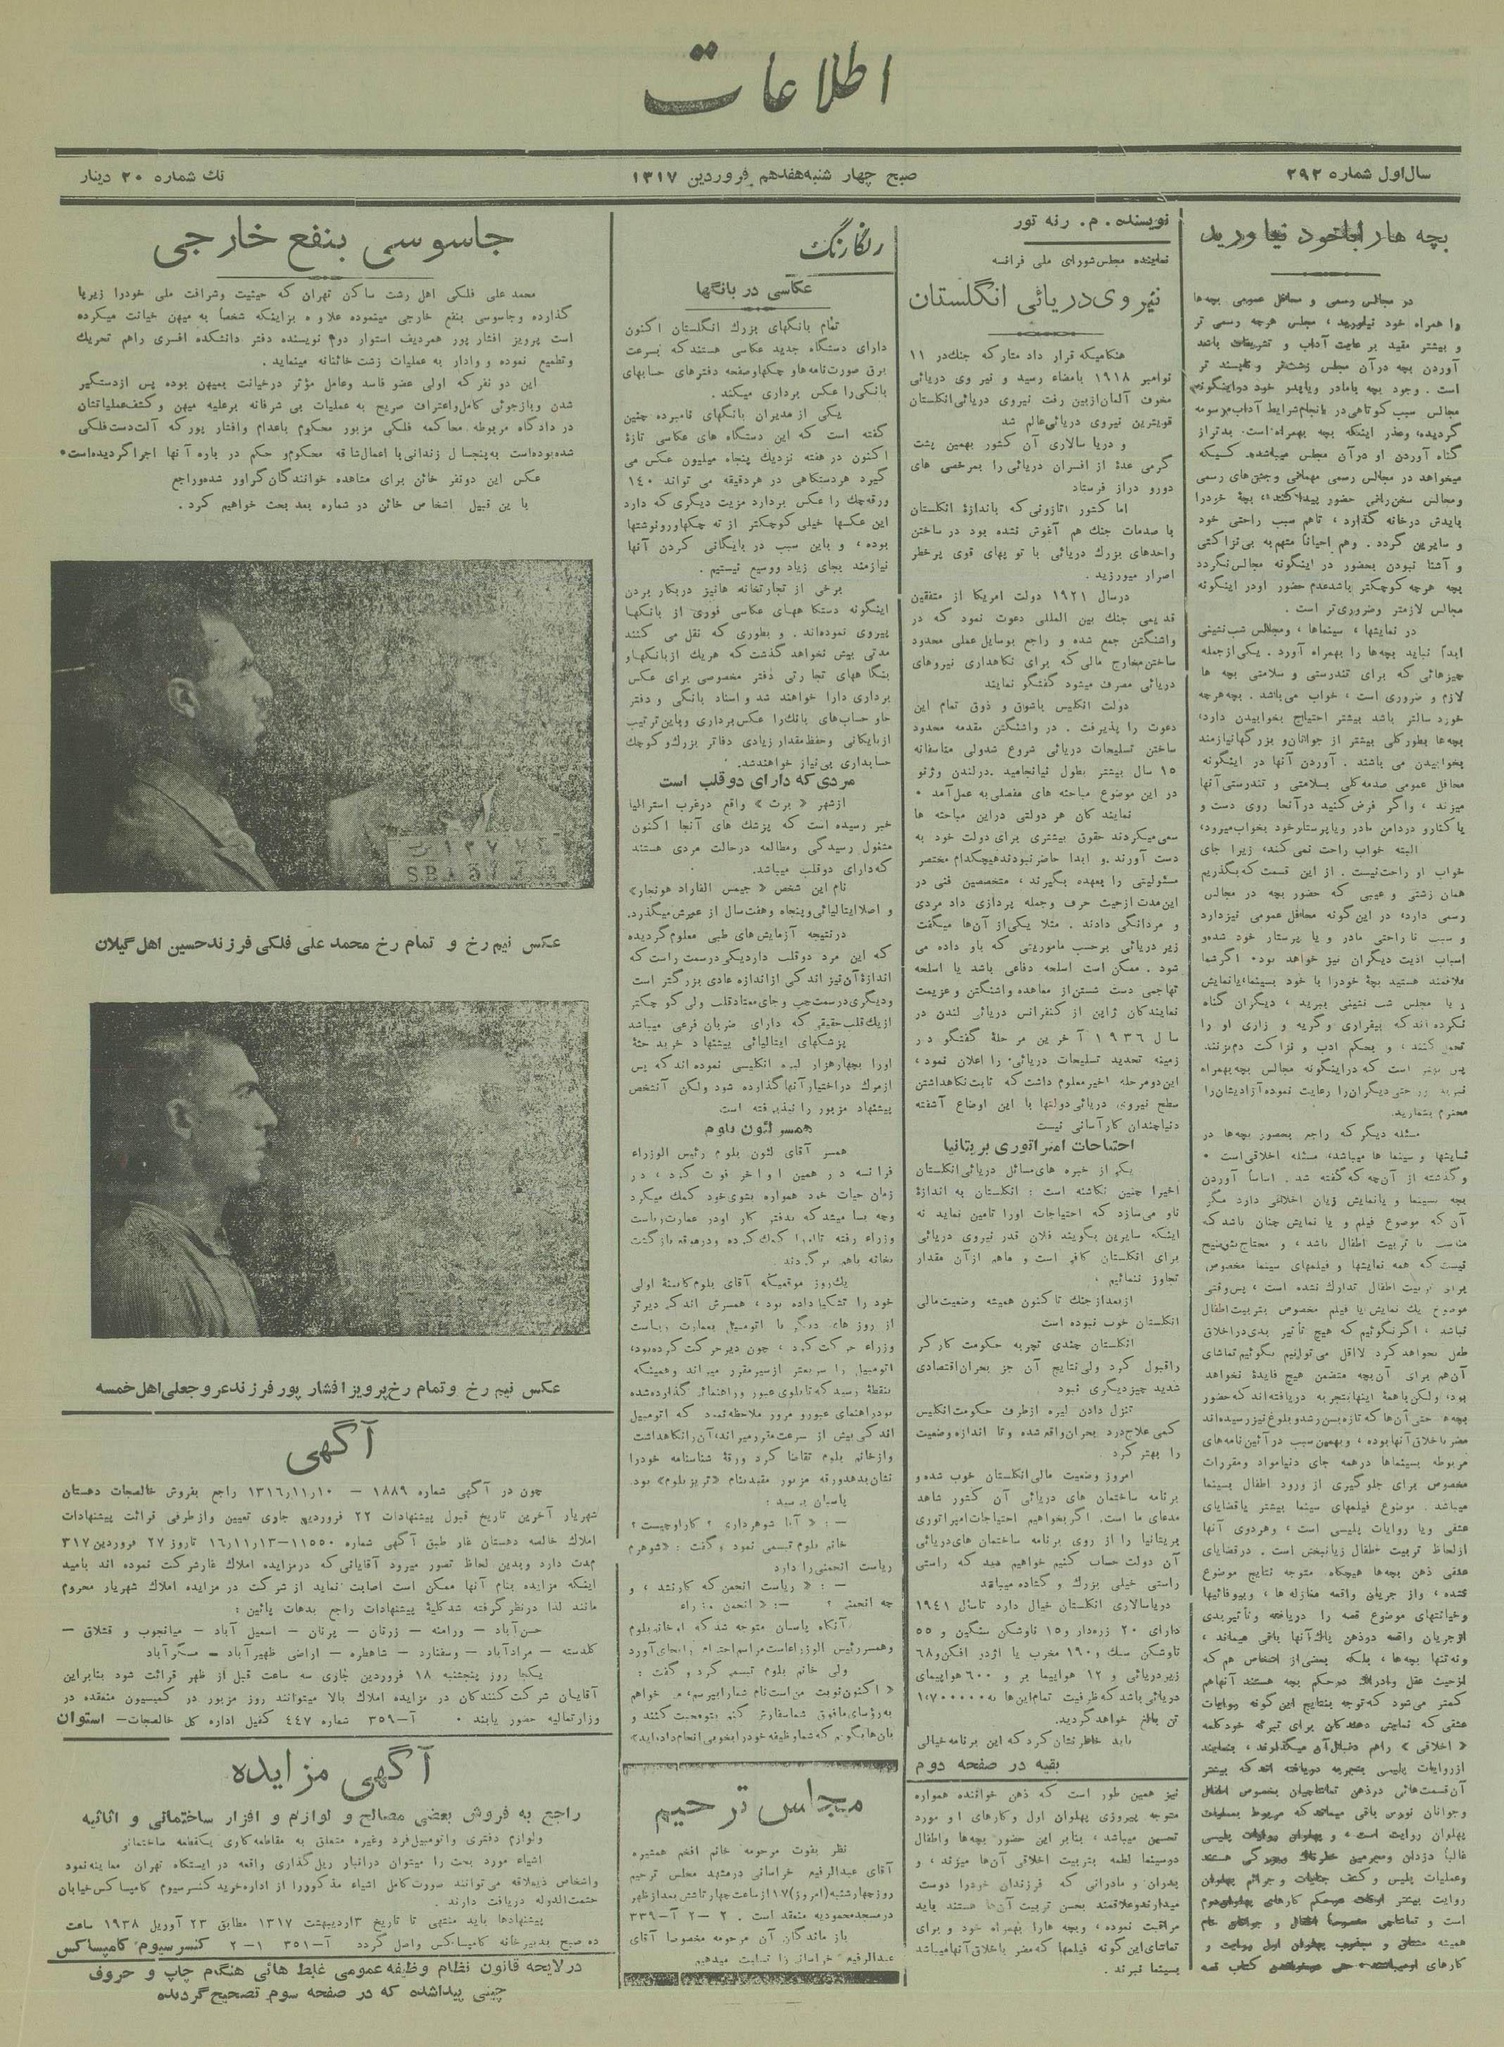 اطلاعات
سال اول شماره ۲۹۲
صبح چهار شنبه هفدهم فروردین ۱۳۱۷
تك شماره ۲۰ دینار
بچه ها را با خود نیاورید
در مجالس رسمی و محافل عمومی بچه‌ها
را همراه خود نیاورید، مجلس هرچه رسمی تر
و بیشتر مقید برعایت آداب و تشریفات باشد
آوردن بچه درآن مجلس زشت‌تر و ناپسند تر
است . وجود بچه با مادر و یا پدر خود در اینگونه
مجالس سبب کوتاهی در انجام شرایط آداب مرسومه
گردیده، وعذر اینکه بچه بهمراه است . بدتر از
گناه آوردن او درآن مجلس میباشد. کسیکه
میخواهد در مجالس رسمی مهمانی وجشن‌های رسمی
ومجالس سخن‌رانی حضور پیدا کند، بچۀ خردرا
بایدش درخانه گذارد، تاهم سبب راحتی خود
و سایرین گردد . وهم احیاناً متهم به بی‌نزاکتی
و آشنا نبودن بحضور در اینگونه مجالس نگردد
بچه هرچه کوچکتر باشد عدم حضور او در اینگونه
مجالس لازمتر وضروری‌تر است .
در نمایشها ، سینماها ، ومجالس شب‌نشینی
ابداً نباید بچه‌ها را بهمراه آورد . یکی از جمله
چیزهائی که برای تندرستی و سلامتی بچه ها
لازم و ضروری است ، خواب می‌باشد . بچه هرچه
خورد سالتر باشد بیشتر احتیاج بخوابیدن دارد،
بچه‌ها بطور کلی بیشتر از جوانان و بزرگها نیازمند
بخوابیدن می باشند . آوردن آنها در اینگونه
محافل عمومی صدمه کلی بسلامتی و تندرستی آنها
میزند ، واگر فرض کنید درآنجا روی دست و
یا کنار و دردامن مادر ویا پرستار خود بخواب میرود،
البته خواب راحت نمی کند، زیرا جای
خواب او راحت نیست . از این قسمت که بگذریم
همان زشتی و عیبی که حضور بچه در مجالس
رسمی دارد، در این گونه محافل عمومی نیز دارد
و سبب نا راحتی مادر و یا پرستار خود شده و
اسباب اذیت دیگران نیز خواهد بود. اگر شما
علاقمند هستید بچۀ خودرا با خود بسینما، یا نمایش
و یا مجلس شب نشینی ببرید ، دیگران گناه
نکرده اند که بیقراری و گریه و زاری او را
تحمل کنند ، و بحکم ادب و نزاکت دم نزنند
پس بهتر است که در اینگونه مجالس بچه بهمراه
حتی دیگران را رعایت نموده آزادیشان را
محترم بشمارید.
مسئله دیگر که راجع بحضور بچه‌ها در
نمایشها و سینما ها میباشد، مسئله اخلاقی است .
وگذشته از آن‌چه که گفته شد . اساساً آوردن
بچه بسینما و یا نمایش زیان اخلاقی دارد مگر
آن که موضوع فیلم و یا نمایش چنان باشد که
مناسب با تربیت اطفال باشد ، و محتاج بتوضیح
نیست که همه نمایشها و فیلمهای سینما مخصوص
برای تربیت اطفال تدارك نشده است ، پس وقتی
موضوع یك نمایش یا فیلم مخصوص بتربیت اطفال
نباشد ، اگر نگوئیم که هیچ تأثیر بدی در اخلاق
طفل نخواهد کرد لا اقل می‌توانیم بگوئیم تماشای
آن هم برای آن بچه متضمن هیچ فایدۀ نخواهد
بود، ولکن با همۀ اینها بتجربه دریافته اند که حضور
بچه‌ها حتی آن‌ها که تازه بسن رشد و بلوغ نیز رسیده‌اند
مضر باخلاق آنها بوده ، وبهمین سبب در آئین‌نامه‌های
مربوطه بسینماها در همه جای دنیا مواد ومقررات
مخصوص برای جلوگیری از ورود اطفال بسینما
میباشد . موضوع فیلمهای سینما بیشتر یا قضایای
عشقی ویا روایات پلیسی است ، وهردوی آنها
از لحاظ تربیت اطفال زیانبخش است . در قضایای
عشقی ذهن بچه‌ها هیچگاه متوجه نتایج موضوع
نشده ، واز جریان واقعه مغازله ها ، وبیوفائیها
وخیانتهای موضوع قصه را دریافته و تأثیر بدی
از جریان واقعه در ذهن پاك آنها باقی میماند ،
ونه تنها بچه‌ها ، بلکه بعضی از اشخاص هم که
از حیث عقل وادراك در حکم بچه هستند آنها هم
کمتر می‌شود که توجه بنتایج این گونه روایات
عشقی که نمایش دهندگان برای تبرئه خود کلمه
« اخلاقی » راهم دنبال آن میگذارند ، بنمایند
از روایات پلیسی بتجربه دریافته اند که بیشتر
آن قسمت‌هائی در ذهن تماشاچیان بخصوص اطفال
وجوانان نورس باقی میماند که مربوط بعملیات
پهلوان روایت است ، و پهلوان روایات پلیسی
غالباً دزدان و مجرمین خطرناك و بزرگی هستند
وعملیات پلیس و کشف جنایات و جرائم پهلوان
روایت بیشتر
است و تماشاچی مخصوصاً اطفال و جوانان خام
همیشه
کارهای
نویسنده . م . رنه تور
نماینده مجلس شورای ملی فرانسه
نیروی دریائی انگلستان
هنگامیکه قرار داد متارکه جنك در ۱۱
نوامبر ۱۹۱۸ بامضاء رسید و نیر وی دریائی
مخوف آلمان از بین رفت نیروی دریائی انگلستان
قویترین نیروی دریائی عالم شد
و دریا سالاری آن کشور بهمین پشت
گرمی عدۀ از افسران دریائی را بمرخصی های
دورو دراز فرستاد
اما کشور اتازونی که باندازۀ انگلستان
با صدمات جنك هم آغوش نشده بود در ساختن
واحدهای بزرك دریائی با تو پهای قوی پرخطر
اصرار میورزید .
در سال ۱۹۲۱ دولت امریکا از متفقین
قدیمی جنك بین المللی دعوت نمود که در
واشنگتن جمع شده و راجع بوسایل عملی محدود
ساختن مخارج مالی که برای نگاهداری نیروهای
دریائی مصرف میشود گفتگو نمایند
دولت انگلیس باشوق و ذوق تمام این
دعوت را پذیرفت . در واشنگتن مقدمه محدود
ساختن تسلیحات دریائی شروع شد ولی متأسفانه
۱۵ سال بیشتر بطول نیانجامید . درلندن وژنو
در این موضوع مباحثه های مفصلی به عمل آمد .
نمایند کان هر دولتی دراین مباحثه ها
سعی میکردند حقوق بیشتری برای دولت خود به
دست آورند. و ابدا حاضر نبودند هیچکدام مختصر
مسئولیتی را بعهده بگیرند ، متخصصین فنی در
این مدت از حیث حرف و جمله پردازی داد مردی
و مردانگی دادند . مثلا یکی از آن‌ها میگفت
زیر دریائی برحسب ماموریتی که باو داده می
شود . ممکن است اسلحه دفاعی باشد یا اسلحه
تهاجمی دست شستن از معاهده واشنگتن و عزیمت
نمایندکان ژاپن از کنفرانس دریائی لندن در
سال ۱۹۳۶ آخرین مرحلۀ گفتگو در
زمینه تحدید تسلیحات دریائی را اعلان نمود،
این دو مرحله اخیر معلوم داشت که ثابت نگاهداشتن
سطح نیروی دریائی دولتها با این اوضاع آشفته
دنیا چندان کار آسانی نیست
احتیاجات امپراتوری بریتانیا
یکی از خبره های مسائل دریائی انگلستان
اخیرا چنین نگاشته است : انگلستان به اندازۀ
ناو می‌سازد که احتیاجات اورا تامین نماید نه
اینکه سایرین بگویند فلان قدر نیروی دریائی
برای انگلستان کافی است و ماهم از آن مقدار
تجاوز ننمائیم ،
از بعد از جنك تا کنون همیشه وضعیت مالی
انگلستان خوب نبوده است
انگلستان چندی تجربه حکومت کارگر
را قبول کرد ولی نتایج آن جز بحران اقتصادی
شدید چیز دیگری نبود
تنزل دادن لیره از طرف حکومت انگلیس
کمی علاج درد بحران واقع شده و تا اندازه وضعیت
را بهتر کرد
امروز وضعیت مالی انگلستان خوب شده و
برنامه ساختمان های دریائی آن کشور شاهد
مدعای ما است . اگر بخواهیم احتیاجات امپراتوری
بریتانیا را از روی برنامه ساختمان های دریائی
آن دولت حساب کنیم خواهیم دید که راستی
راستی خیلی بزرك و گشاده میباشد
دریاسالاری انگلستان خیال دارد تا سال ۱۹۴۱
دارای ۲۰ زره‌دار و ۱۵ ناوشکن سنگین و ۵۵
ناوشکن سبك و ۱۶۰ مخرب یا اژدر افکن و ۶۸
زیر دریائی و ۱۲ هواپیما بر و ۶۰۰ هواپیمای
دریائی باشد که ظرفیت تمام این‌ها به ۱،۷۰۰۰۰۰۰
تن بالغ خواهد گردید.
باید خاطر نشان کرد که این برنامه خیالی
بقیه در صفحه دوم
نیز همین طور است که ذهن خواننده همواره
متوجه پیروزی پهلوان اول وکارهای او مورد
تحسین میباشد ، بنابر این حضور بچه‌ها واطفال
در سینما لطمه بتربیت اخلاقی آن‌ها میزند ، و
پدران و مادرانی که فرزندان خودرا دوست
میدارند و علاقمند بحسن تربیت آن‌ها هستند باید
مراقبت نموده ، وبچه هارا بهمراه خود و برای
تماشای این گونه فیلمها که مضر باخلاق آنها میباشد
بسینما نبرند .
رنگارنگ
عکاسی در بانگها
تمام بانگهای بزرك انگلستان اکنون
دارای دستگاه جدید عکاسی هستند که بسرعت
برق صورت‌نامه‌ها و چکها وصفحه دفترهای حسابهای
بانکی را عکس برداری میکند.
یکی از مدیران بانگهای نامبرده چنین
گفته است که این دستگاه های عکاسی تازۀ
اکنون در هفته نزدیك پنجاه میلیون عکس می
گیرد هر دستگاهی در هر دقیقه می تواند ۱۴۰
ورقه چك را عکس بردارد مزیت دیگری که دارد
این عکسها خیلی کوچکتر از ته چکها و رونوشتها
بوده ، و باین سبب در بایگانی کردن آنها
نیازمند بجای زیاد ووسیع نیستیم .
برخی از تجارتخانه هانیز در بکار بردن
اینگونه دستگا ههای عکاسی فوری از بانکها
پیروی نموده‌اند . و بطوری که نقل می کنند
مدتی بیش نخواهد گذشت که هریك از بانکها و
بنگا ههای تجارتی دفتر مخصوصی برای عکس
برداری دارا خواهند شد و اسناد بانگی و دفتر
حاو حساب‌های بانك را عکس برداری و باین ترتیب
از بایگانی وحفظ مقدار زیادی دفاتر بزرك و کوچك
حسابداری بی‌نیاز خواهند شد.
مردی که دارای دو قلب است
ازشهر « برت » واقع درغرب استرالیا
خبر رسیده است که پزشك های آنجا اکنون
مشغول رسیدگی ومطالعه در حالت مردی هستند
که دارای دو قلب میباشد.
نام این شخص « جیمس الفاراد هونجار»
و اصلا ایتالیائی و پنجاه و هفت سال از عمرش میگذرد.
در نتیجه آزمایش‌های طبی معلوم گردیده
که این مرد دو قلب دارد یکی درسمت راست که
اندازۀ آن نیز اندکی از اندازه عادی بزرگتر است
ودیگری درسمت چپ و جای معتاد قلب ولی کو چکتر
از یك قلب حقیقی که دارای ضربان فرعی میباشد
پزشکهای ایتالیائی پیشنهاد خرید جثۀ
اورا بچهار هزار لیره انگلیسی نموده اند که پس
از مرك در اختیار آنها گذارده شود ولکن آنشخص
پیشنهاد مزبور را نپذیرفته است
همسر لئون بلوم
همسر آقای لئون بلوم رئیس الوزراء
فرانسه در همین اواخر فوت کرد ، در
زمان حیات خود همواره بشوی خود کمك میکرد
وچه بسا میشد که بدفتر کار او در عمارت ریاست
وزراء رفته تا او را کمك کرده و در موقع بازگشت
بخانه باهم برگردند .
یك‌روز موقعیکه آقای بلوم کابینۀ اولی
خود را تشکیل داده بود ، همسرش اندکی دیرتر
از روز های دیگر با اتومبیل بعمارت ریاست
وزراء حرکت کرد ، چون دیر حرکت کرده بود،
اتومبیل را سریعتر از سیر مقرر میراند وهمینکه
بنقطۀ رسید که تابلوی عبور و راهنمائی گذارده شده
بود راهنمای عبور و مرور ملاحظه نمود که اتومبیل
اندکی بیش از سرعت مقرر میراند، آن را نگاهداشت
واز خانم بلوم تقاضا کرد ورقۀ شناسنامه خود را
نشان بدهد ورقه مزبور مقید بنام «تریز بلوم» بود.
پاسبان پرسید :
— : « آیا شوهرداری ؟ کار او چیست ؟
خانم بلوم تبسمی نمود و گفت : «شوهرم
ریاست انجمنی را دارد
— : « ریاست انجمن که کارنشد ، و
چه انجمنی ؟ — : « انجمن وزراء
آنگاه پاسبان متوجه شد که او خانم بلوم
وهمسر رئیس الوزراء است مراسم احترام را بجای آورد
ولی خانم بلوم تبسم کرد و گفت :
« اکنون نوبت من است نام شمارا بپرسم ، می خواهم
به رؤسای مافوق شما سفارش کنم بتو محبت کنند و
بآن‌ها بگویم که شما وظیفه خود را بخوبی انجام داده‌اید»
مجلس ترحیم
نظر بفوت مرحومه خانم افخم همشیره
آقای عبدالرفیع خراسانی در مشهد مجلس ترحیم
روز چهارشنبه (امروز) ۱۷ از ساعت چهار تا شش بعد از ظهر
در مسجد محمودیه منعقد است . ۲ – ۲ آ–۳۳۹
باز ماندگان آن مرحومه مخصوصا آقای
عبدالرفیع خراسانی را تسلیت میدهیم
جاسوسی بنفع خارجی
محمد علی فلکی اهل رشت ساکن تهران که حیثیت وشرافت ملی خودرا زیرپا
گذارده وجاسوسی بنفع خارجی مینموده علاوه براینکه شخصاً به میهن خیانت میکرده
است پرویز افشار پور همردیف استوار دوم نویسنده دفتر دانشکده افسری راهم تحریك
وتطمیع نموده و وادار به عملیات زشت خائنانه مینماید .
این دو نفر که اولی عضو فاسد وعامل مؤثر درخیانت بمیهن بوده پس ازدستگیر
شدن وبازجوئی کامل واعتراف صریح به عملیات بی شرفانه برعلیه میهن و کشف عملیاتشان
در دادگاه مربوطه محاکمه فلکی مزبور محکوم باعدام وافشار پور که آلت دست فلکی
شده بوده است به پنجسال زندانی با اعمال شاقه محکوم و حکم در باره آنها اجرا گردیده است.
عکس این دونفر خائن برای مشاهده خوانندگان گراور شده وراجع
با ین قبیل اشخاص خائن در شماره بعد بحث خواهیم کرد .
عکس نیم رخ و تمام رخ محمد علی فلکی فرزند حسین اهل گیلان
عکس نیم رخ و تمام رخ پرویز افشار پور فرزند عروجعلی اهل خمسه
آگهی
چون در آگهی شماره ۱۸۸۹ – ۱۳۱۶٫۱۱٫۱۰ راجع بفروش خالصجات دهستان
شهریار آخرین تاریخ قبول پیشنهادات ۲۲ فروردین جاری تعیین واز طرفی قرائت پیشنهادات
املاك خالصه دهستان غار طبق آگهی شماره ۱۱۵۵۰–۱۶٫۱۱٫۱۳ تا روز ۲۷ فروردین ۳۱۷
مدت دارد وبدین لحاظ تصور میرود آقایانی که در مزایده املاك غار شرکت نموده اند بامید
اینکه مزایده بنام آنها ممکن است اصابت نماید از شرکت در مزایده املاك شهریار محروم
مانند لذا در نظر گرفته شد کلیۀ پیشنهادات راجع بدهات پائین :
حسن آباد – ورامنه – زرنان – پرنان – اسمعیل آباد – میانجوب و قشلاق –
گلدسته – مرادآباد – وسفنارد – شاهطره – اراضی ظهیرآباد – عسگرآباد
یکجا روز پنجشنبه ۱۸ فروردین جاری سه ساعت قبل از ظهر قرائت شود بنابراین
آقایان شرکت کنندکان در مزایده املاك بالا میتوانند روز مزبور در کمیسیون منعقده در
وزارتمالیه حضور یابند . آ–۳۵۹ شماره ۴۴۷ کفیل اداره کل خالصجات – استوان
آگهی مزایده
راجع به فروش بعضی مصالح و لوازم و افزار ساختمانی و اثاثیه
ولوازم دفتری واتومبیل فرد وغیره متعلق به مقاطعه کاری یکقطعه ساختمانی
اشیاء مورد بحث را میتوان درانبار ریل گذاری واقعه در ایستگاه تهران معاینه نمود
واشخاص ذیعلاقه می توانند صورت کامل اشیاء مذکوررا از اداره خرید کنسرسیوم کامپساکس خیابان
حشمت الدوله دریافت دارند .
پیشنهادها باید منتهی تا تاریخ ۳ اردیبهشت ۱۳۱۷ مطابق ۲۳ آوریل ۱۹۳۸ ساعت
ده صبح بدبیرخانه کامپساکس واصل گردد آ–۳۵۱ ۱–۲ کنسرسیوم کامپساکس
در لایحه قانون نظام وظیفه عمومی غلط هائی هنگام چاپ و حروف
چینی پیدا شده که در صفحه سوم تصحیح گردیده